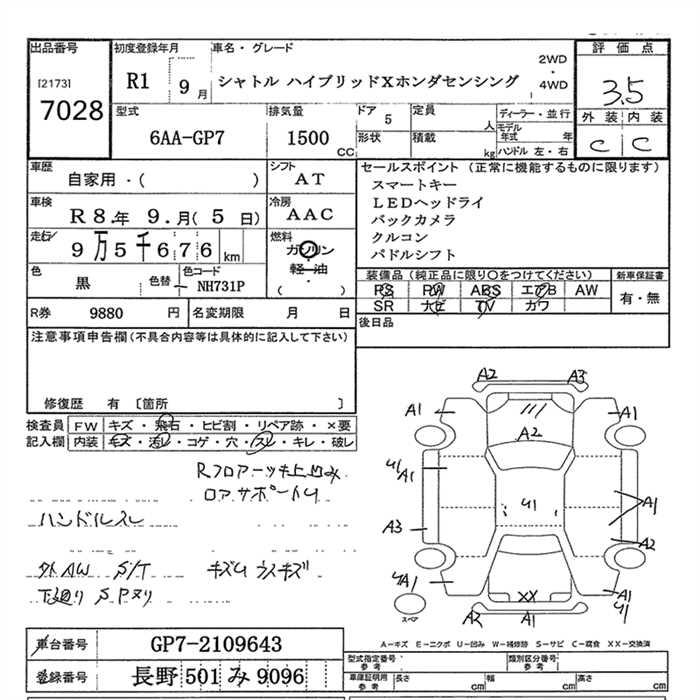 出品番号
[2173]
7028
初度登録年月
R1 9 月
車名・グレード
シャトル ハイブリッドXホンダセンシング
2WD
・
4WD
評価点
3.5
外装 内装
C C
型式
6AA-GP7
排気量
1500
CC
ドア
5
定員
人
形状
積載
kg
ディーラー・並行
モデル年式 年
ハンドル 左・右
車歴
自家用・( )
シフト
AT
車検
R 8.年 9.月( 5 日)
冷房
AAC
走行
9万5千676 km
燃料
ガソリン
軽・油
( )
色
黒
色替
色コード
NH731P
R券 9880 円
名変期限 月 日
セールスポイント (正常に機能するものに限ります)
スマートキー
LEDヘッドライ
バックカメラ
クルコン
パドルシフト
装備品(純正品に限り○をつけてください)
PS PW ABS エアB AW
SR ナビ TV カワ
新車保証書
有・無
後日品
注意事項申告欄(不具合内容等は具体的に記入して下さい)
修復歴 有 〔箇所 〕
検査員記入欄
FW キズ・飛石・ヒビ割・リペア跡・×要
内装 キズ・汚レ・コゲ・穴・スレ・キレ・破レ
Rフロアーツキ上凹み
ロアサポートU
ハンドルスレ
外AW S/T キズU ウスキズ
下廻り SPヌリ
A2 A3
A1 A1
A2
U1
A1
U1
A1
A3
A2
UA1
A1
U1
XX
A2 A1
スペア
A-キズ E-エクボ U-凹み W-補修跡 S-サビ C-腐食 XX-交換済
車台番号 GP7-2109643
登録番号 長野 501 み 9096
型式指定番号
参考
類別区分番号
参考
車庫証明用
参考
長さ cm
幅 cm
高さ cm